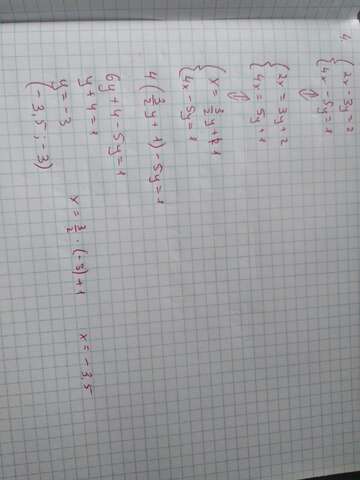 4.
{ 2x - 3y = 2
{ 4x - 5y = 1
⇕
{ 2x = 3y + 2
{ 4x = 5y + 1
⇕
{ x = 3/2 y + 1
{ 4x - 5y = 1
4(3/2 y + 1) - 5y = 1
6y + 4 - 5y = 1
y + 4 = 1
y = -3
x = 3/2 · (-3) + 1
x = -3,5
(-3,5 ; -3)